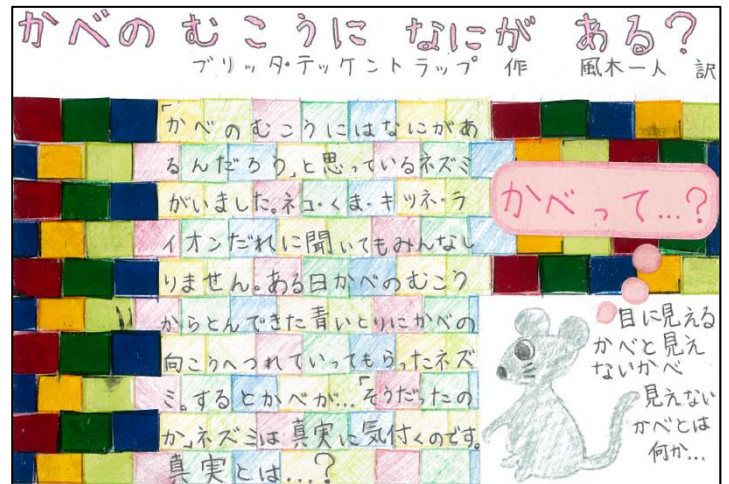 かべの むこうに なにが ある?
ブリッタ・テッケントラップ 作 風木一人 訳
「かべのむこうにはなにがあ
るんだろう」と思っているネズミ
がいました。ネコ・くま・キツネ・ラ
イオンだれに聞いてもみんなし
りません。ある日かべのむこう
からとんできた青いとりにかべの
向こうへつれていってもらったネズ
ミ。するとかべが…「そうだったの
か」ネズミは真実に気付くのです。
真実とは…?
かべって…?
目に見える
かべと見え
ないかべ
見えない
かべとは
何か…